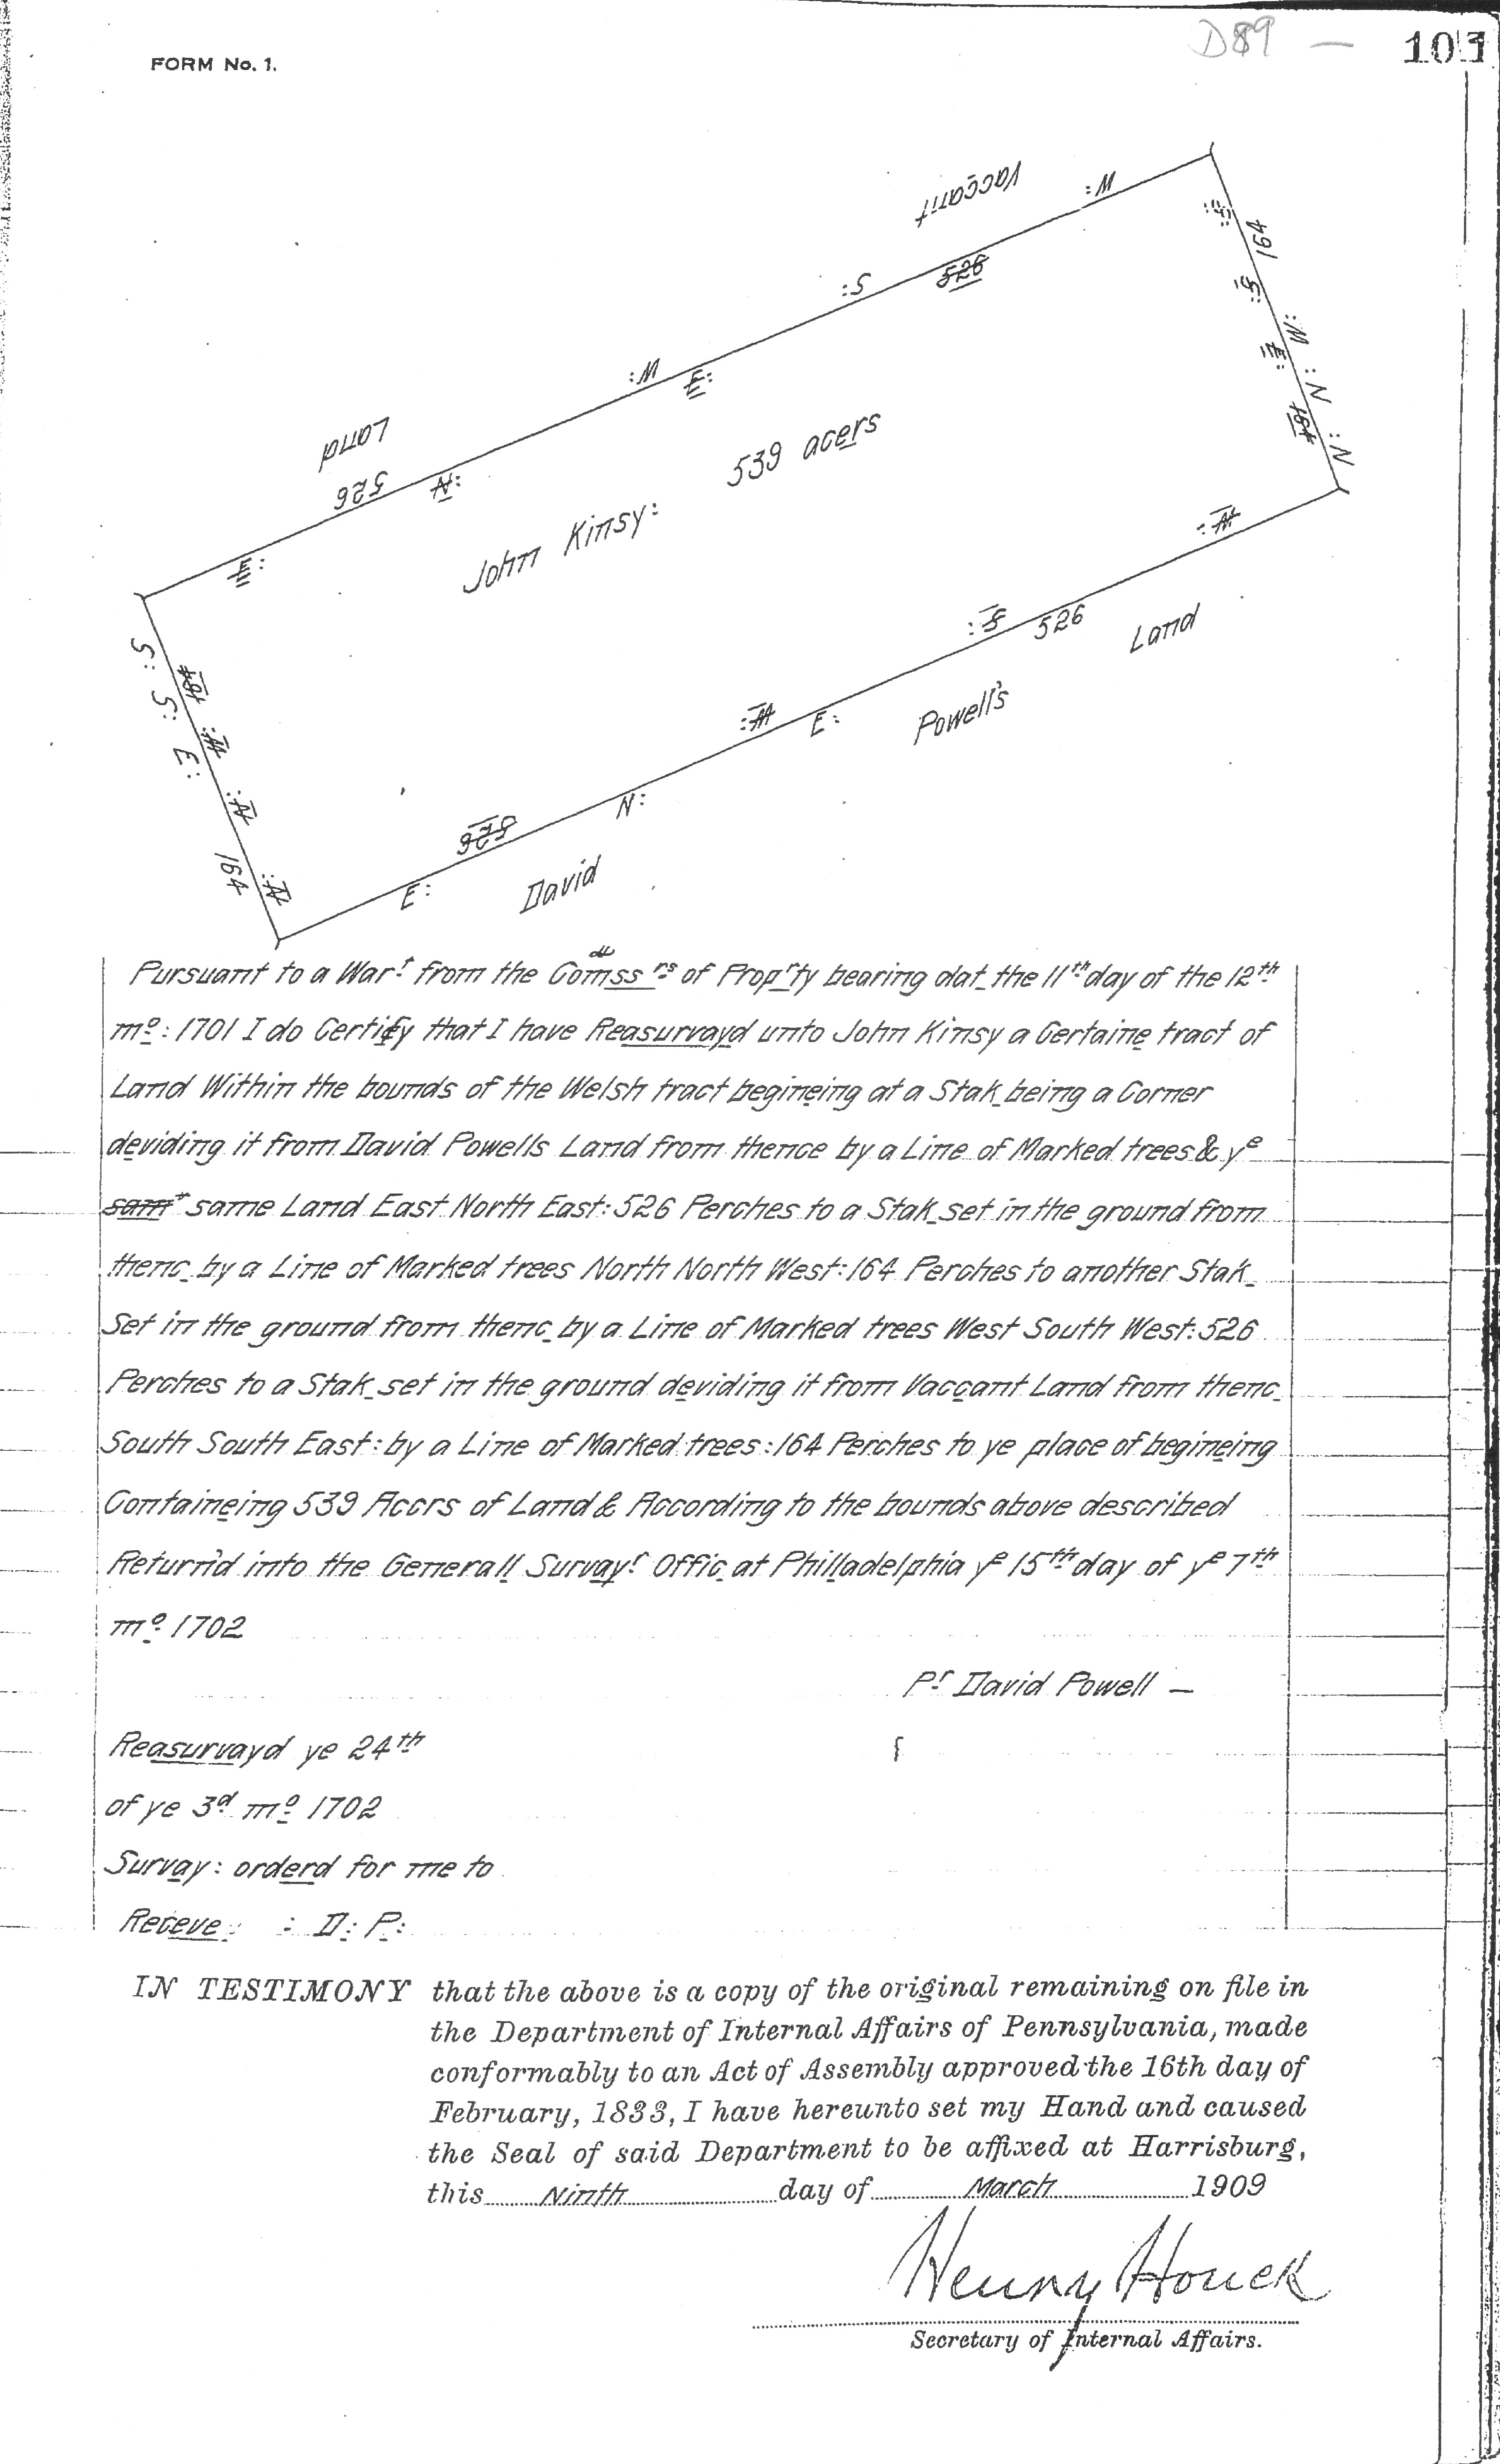 FORM No. 1.
D89 —
Vaccant
:W
:S
526
:W
E:
Land
526
N:
E:
539 acers
John Kinsy:
164
:S
:S
:E
164
W:
N:
N:
S:
S:
E:
164
164
W:
N:
N:
:W
:S
526
Land
:W
E:
Powell's
N:
526
E:
David
Pursuant to a Warᵗ from the Comssʳˢ of Propʳty bearing dat the 11ᵗʰ day of the 12ᵗʰ
mº: 1701 I do Certify that I have Reasurvayd unto John Kinsy a Certaine tract of
Land Within the bounds of the Welsh tract begineing at a Stak being a Corner
deviding it from David Powells Land from thence by a Line of Marked trees & yᵉ
sam same Land East North East: 526 Perches to a Stak set in the ground from
thenc by a Line of Marked trees North North West: 164 Perches to another Stak
Set in the ground from thenc by a Line of Marked trees West South West: 526
Perches to a Stak set in the ground deviding it from Vaccant Land from thenc
South South East: by a Line of Marked trees: 164 Perches to ye place of begineing
Containeing 539 Accrs of Land & According to the bounds above described
Return'd into the Generall Survayʳ Offic at Philladelphia yᵉ 15ᵗʰ day of yᵉ 7ᵗʰ
mº 1702
Pʳ David Powell —
Reasurvayd ye 24ᵗʰ
of ye 3ᵈ mº 1702
Survay: orderd for me to
Receve: : D: P:
IN TESTIMONY that the above is a copy of the original remaining on file in
the Department of Internal Affairs of Pennsylvania, made
conformably to an Act of Assembly approved the 16th day of
February, 1833, I have hereunto set my Hand and caused
the Seal of said Department to be affixed at Harrisburg,
this Ninth day of March 1909
Henry Houck
Secretary of Internal Affairs.